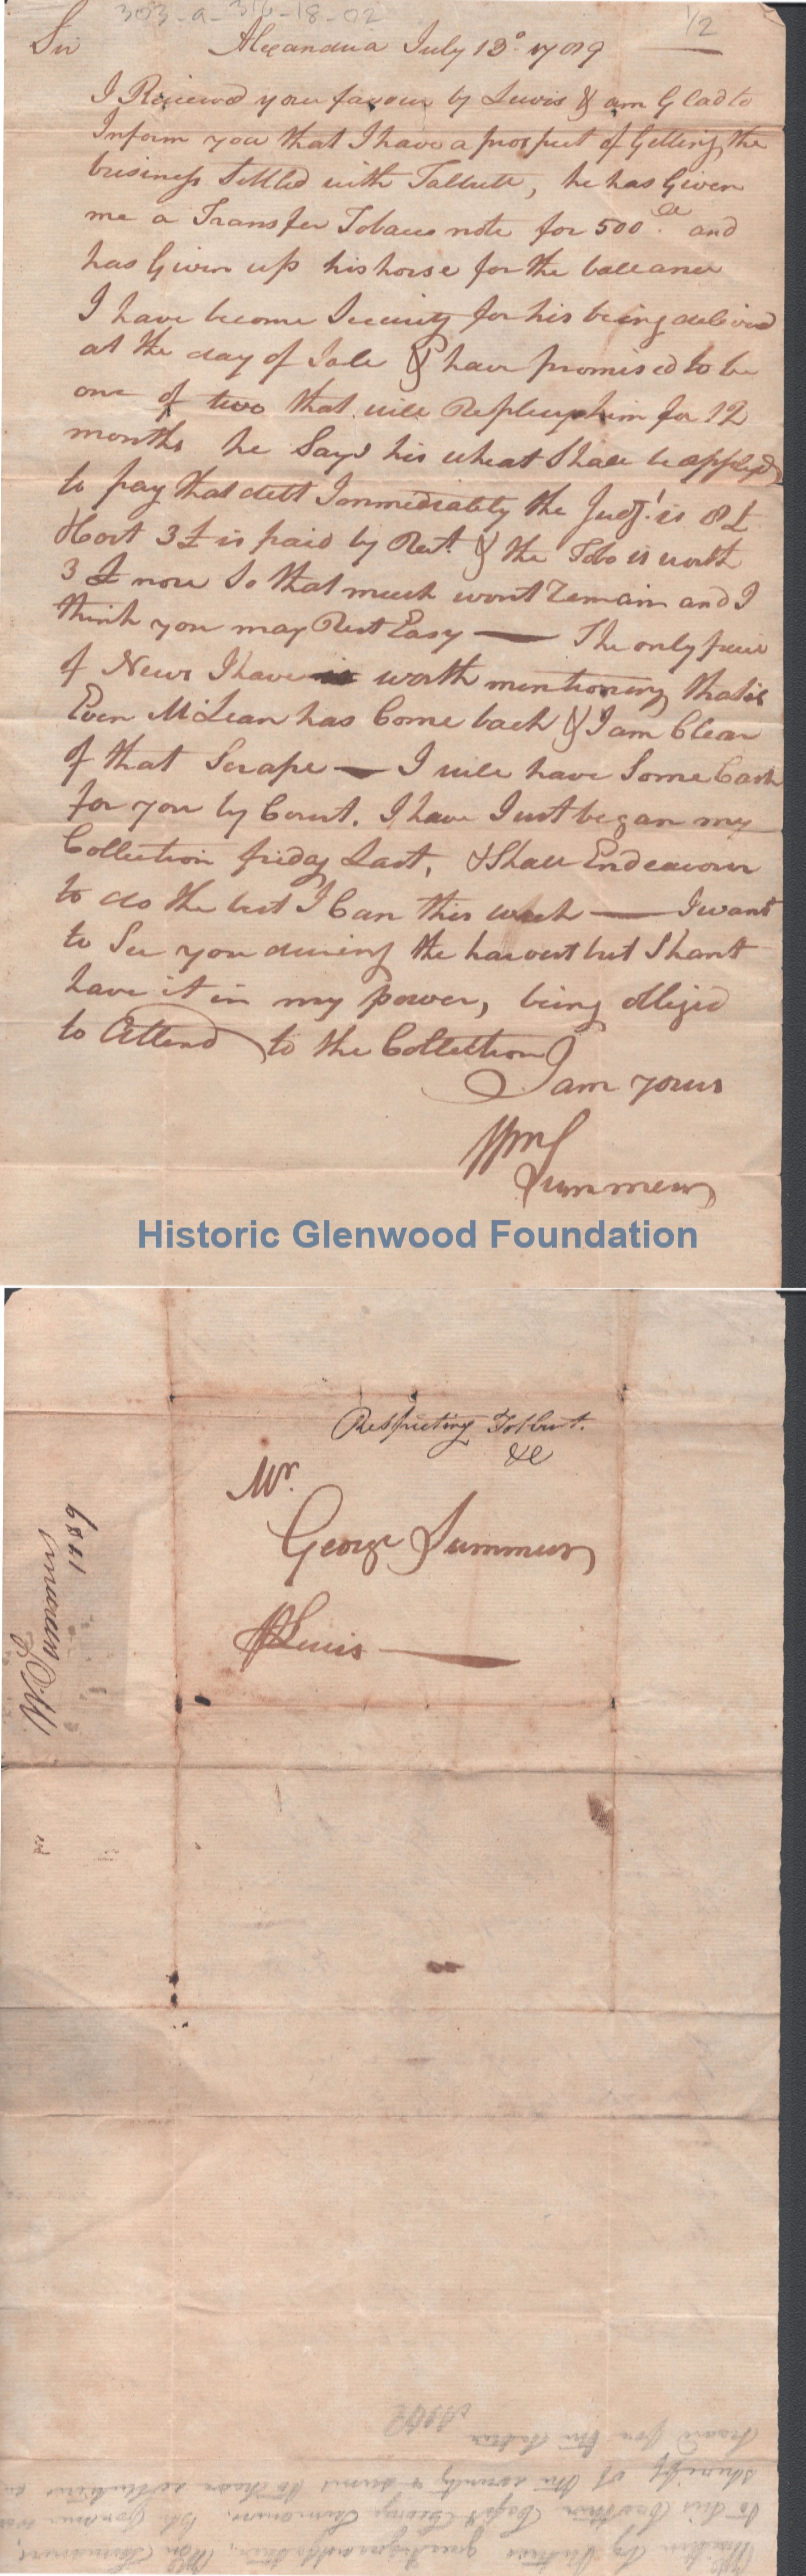 303-a-316-18-02
1/2
Sir Alexandria July 13º 1789
I Received your favour by Lewis & am Glad to
Inform you that I have a prospect of Getting the
business Settled with Talbutt, he has Given
me a Transfer Tobacco note for 500 and
has Given up his horse for the ballance
I have become Security for his being delivered
at the day of Sale & have promised to be
one of two that will Replevy him for 12
months he Says his wheat Shall be applyed
to pay that debt Immediately the Judgt is 8£
Cost 3£ is paid by Rect. & the Tobo is worth
3£ more So that much wont Remain and I
think you may Rest Easy — The only piece
of News I have worth mentioning that is
Even McLean has Come back & I am Clear
of that Scrape — I will have Some Cash
for you by Court. I have Just began my
Collection friday Last, & Shall Endeavour
to do the best I Can this week — I want
to See you during the harvest but Shant
have it in my power, being obliged
to Attend to the Collection
I am yours
Wm
Summers
Historic Glenwood Foundation
Respecting Tolbut.
&c
Mr.
George Summers
Lewis
W. Summers
1789
Written by Wm Summers,
to his brother George Summers.
sheriff of the county &